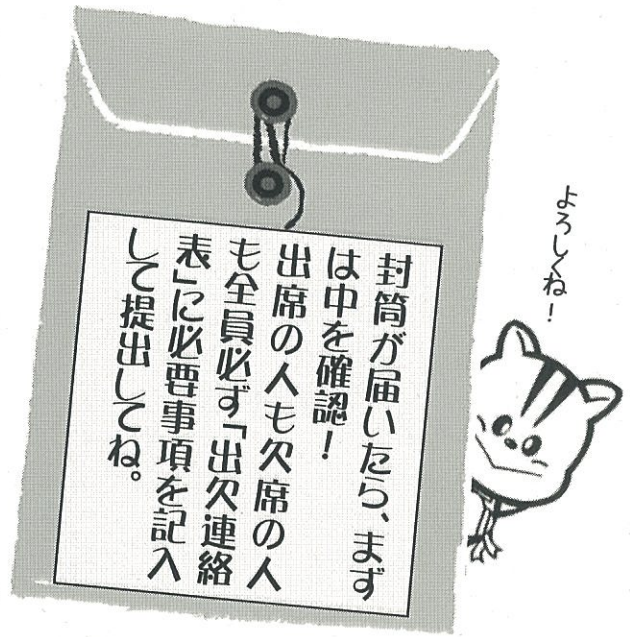 封筒が届いたら、まず
は中を確認!
出席の人も欠席の人
も全員必ず「出欠連絡
表」に必要事項を記入
して提出してね。
よろしくね!